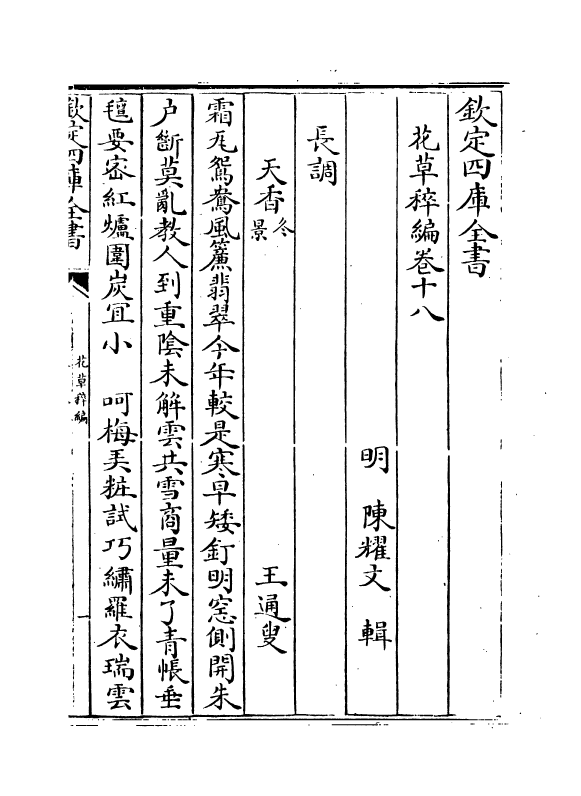 欽定四庫全書
花草稡編卷十八
明 陳耀文 輯
長調
天香冬景 王通叟
霜瓦鴛鴦風簾翡翠今年較是寒早矮釘明窓側開朱
户斷莫亂教人到重隂未解雲共雪商量未了青帳垂
氊要宻紅爐圍炭宜小 呵梅弄粧試巧繡羅衣瑞雲
欽定四庫全書
花草稡編
一